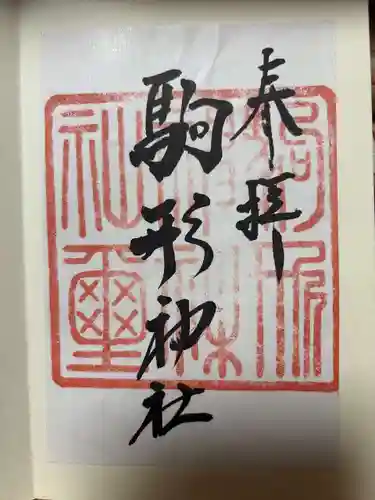 奉拝
駒形神社
駒形神社璽